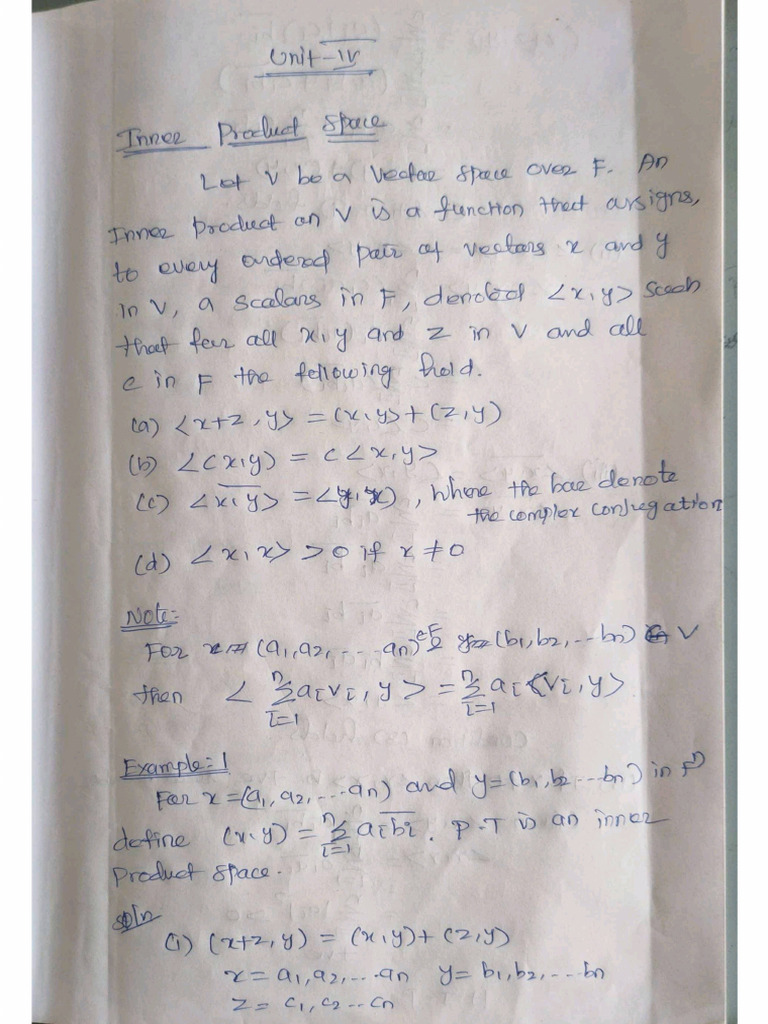 Unit-IV
Inner Product Space
Let V be a vector space over F. An
Inner product on V is a function that assigns,
to every ordered pair of vectors x and y
in V, a scalars in F, denoted <x,y> such
that for all x,y and z in V and all
c in F the following hold.
(a) <x+z,y> = (x,y>+(z,y)
(b) <cx,y) = c<x,y>
(c) <\overline{x,y}> = <y,x), where the bar denote
the complex conjugation
(d) <x,x> >0 if x≠0
Note:-
For (a1,a2,...an) (b1,b2,...bn) V
then < \sum_{i=1}^{n} aivi, y> = \sum_{i=1}^{n} ai <vi,y>
Example:-1
For x=(a1,a2,...an) and y=(b1,b2...bn) in F^n
define (x,y) = \sum_{i=1}^{n} ai\overline{bi}. P.T is an inner
product space.
soln
(i) (x+z,y) = (x,y)+(z,y)
x=a1,a2,...an y=b1,b2,...bn
z=c1,c2...cn